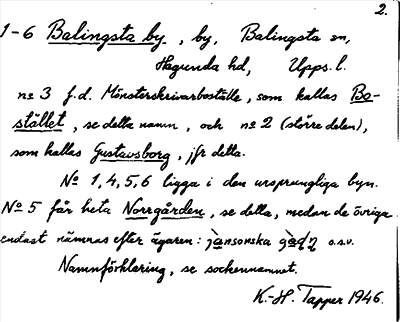 2.
1-6 Balingsta by, by, Balingsta sn,
Hagunda hd, Upps. l.
no 3 f.d. Mönsterskrivarboställe, som kallas Bo-
stället, se detta namn, och no 2 (större delen),
som kallas Gustavsborg, jfr detta.
No 1, 4, 5, 6 ligga i den ursprungliga byn.
No 5 får heta Norrgården, se detta, medan de övriga
endast nämnas efter ägaren: jansonska o.s.v.
Namnförklaring, se sockennamnet.
K.-H. Tapper 1946.